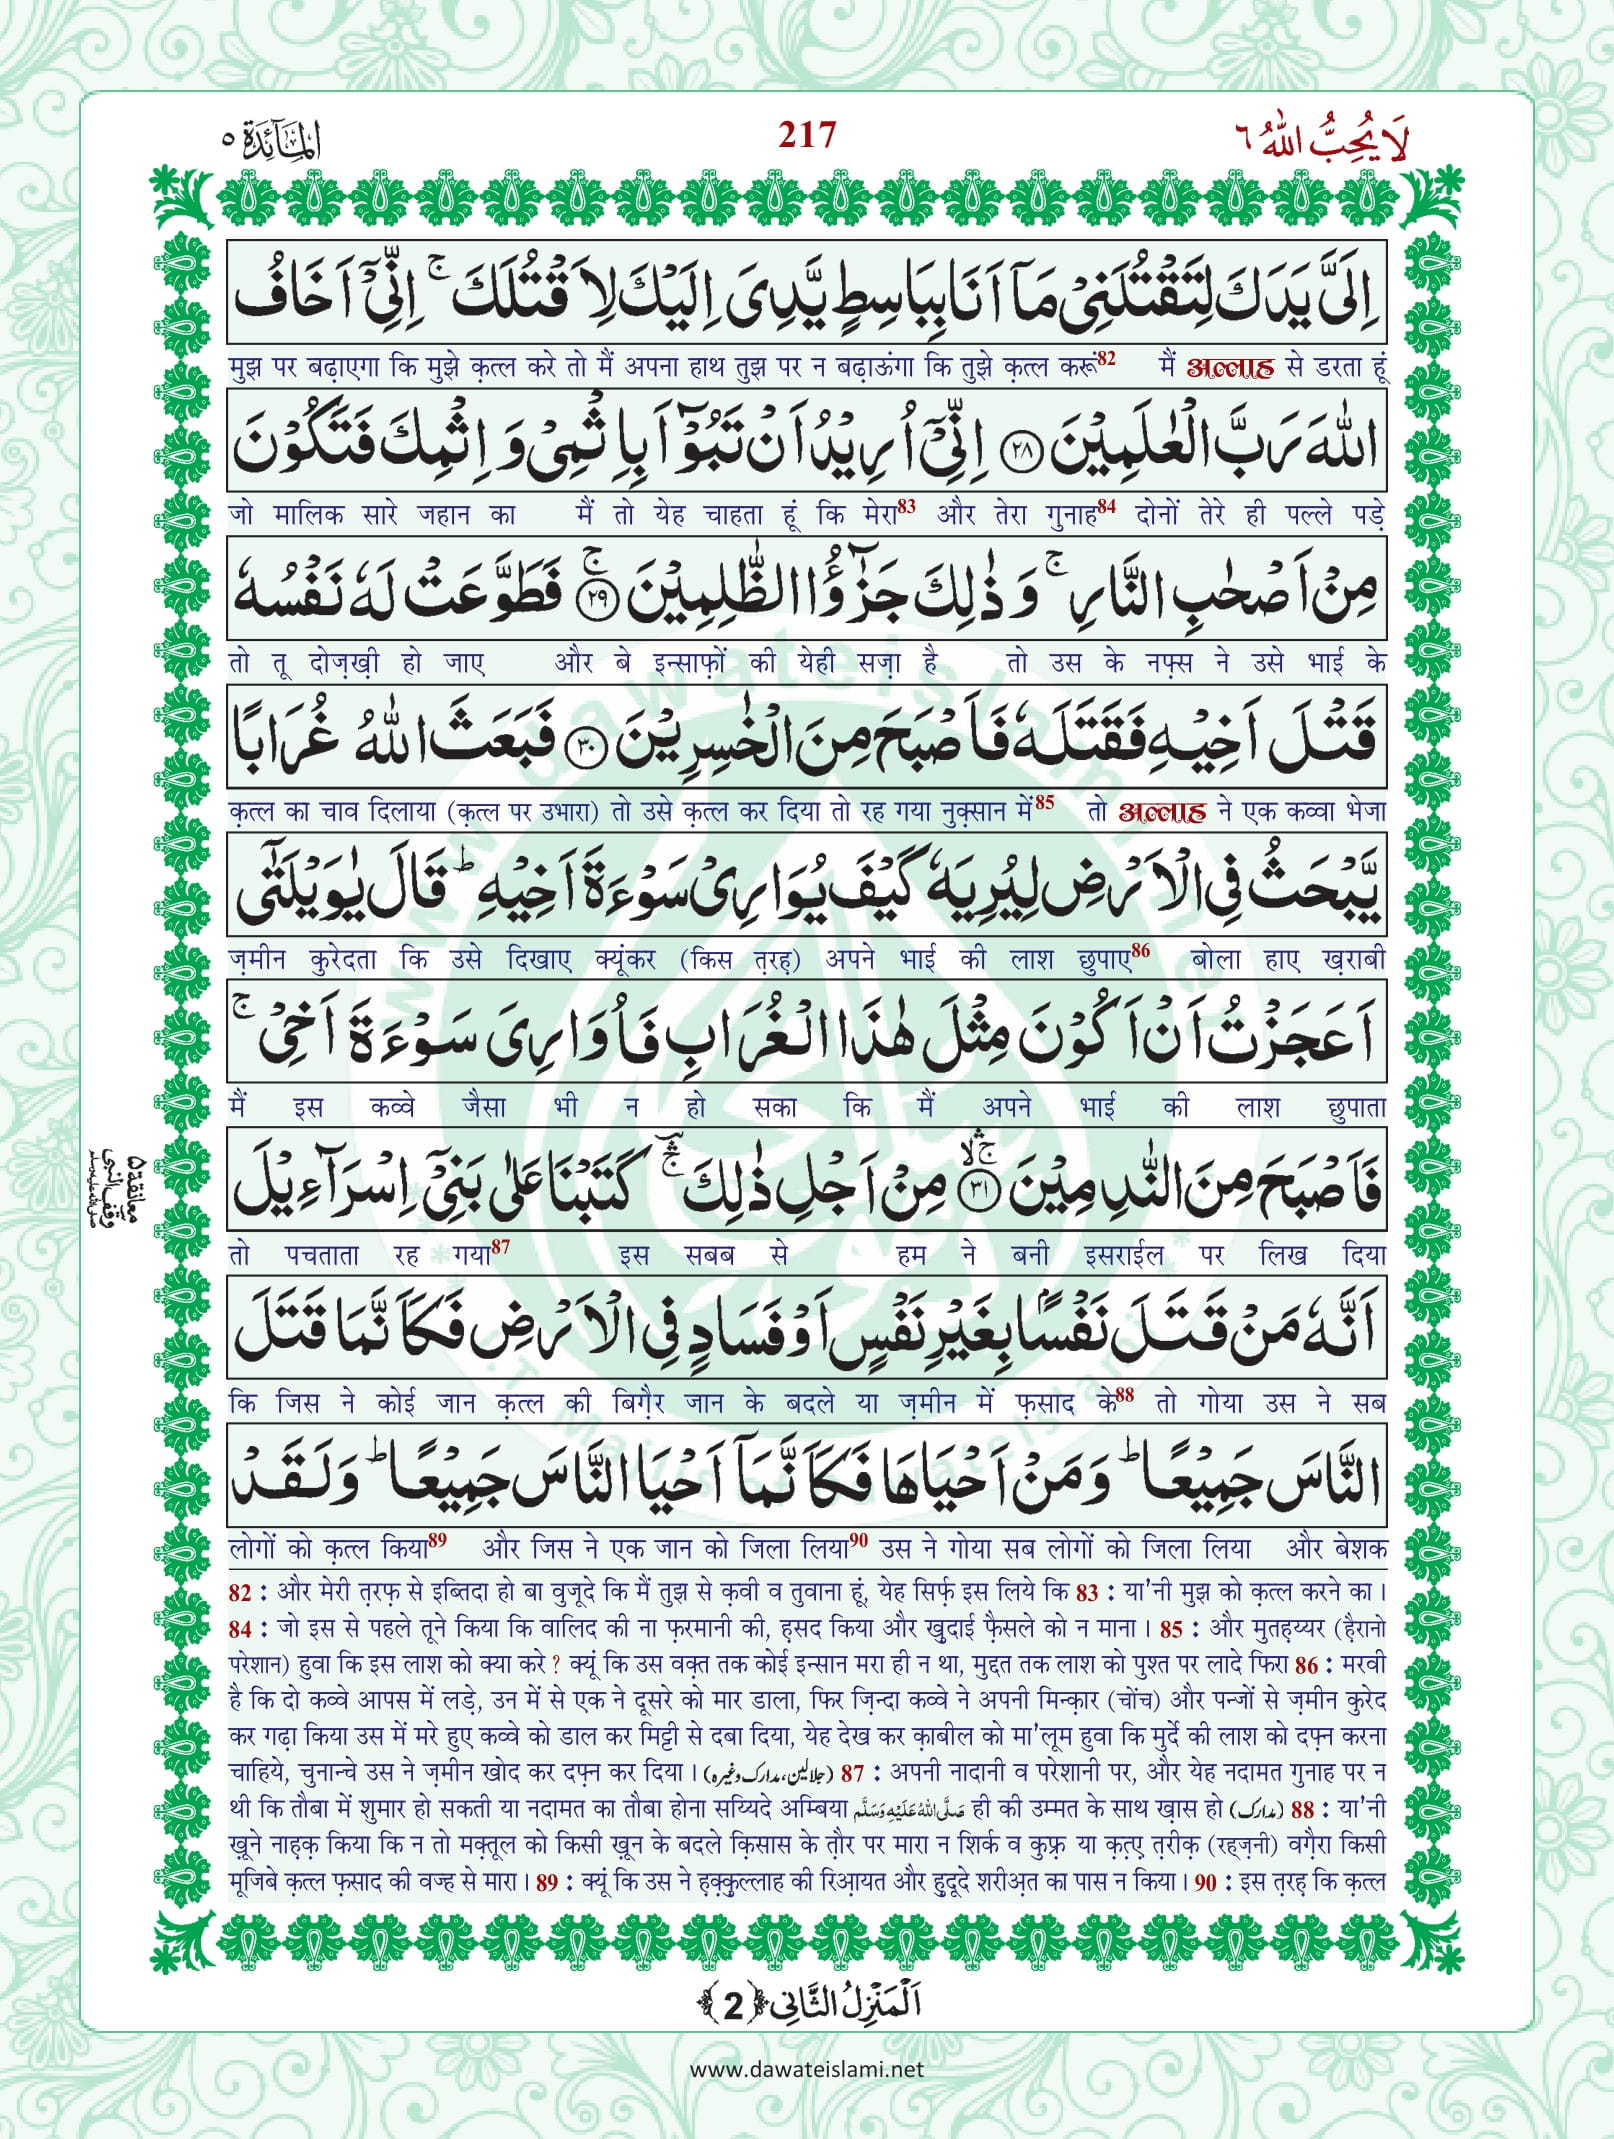 المآئدة ٥
217
لَا يُحِبُّ اللّٰهُ ٦
اِلَیَّ یَدَكَ لِتَقْتُلَنِیْ مَاۤ اَنَا بِبَاسِطٍ یَّدِیَ اِلَیْكَ لِاَقْتُلَكَ ۚ اِنِّیْۤ اَخَافُ
मुझ पर बढ़ाएगा कि मुझे क़त्ल करे तो मैं अपना हाथ तुझ पर न बढ़ाऊंगा कि तुझे क़त्ल करूं82 मैं अल्लाह से डरता हूं
اللّٰهَ رَبَّ الْعٰلَمِیْنَ ﴿۲۸﴾ اِنِّیْۤ اُرِیْدُ اَنْ تَبُوْٓاَ بِاِثْمِیْ وَ اِثْمِكَ فَتَكُوْنَ
जो मालिक सारे जहान का मैं तो येह चाहता हूं कि मेरा83 और तेरा गुनाह84 दोनों तेरे ही पल्ले पड़े
مِنْ اَصْحٰبِ النَّارِ ۚ وَ ذٰلِكَ جَزٰٓؤُا الظّٰلِمِیْنَ ﴿۲۹﴾ۚ فَطَوَّعَتْ لَهٗ نَفْسُهٗ
तो तू दोज़ख़ी हो जाए और बे इन्साफ़ों की येही सज़ा है तो उस के नफ़्स ने उसे भाई के
قَتْلَ اَخِیْهِ فَقَتَلَهٗ فَاَصْبَحَ مِنَ الْخٰسِرِیْنَ ﴿۳۰﴾ فَبَعَثَ اللّٰهُ غُرَابًا
क़त्ल का चाव दिलाया (क़त्ल पर उभारा) तो उसे क़त्ल कर दिया तो रह गया नुक़्सान में85 तो अल्लाह ने एक कव्वा भेजा
یَّبْحَثُ فِی الْاَرْضِ لِیُرِیَهٗ كَیْفَ یُوَارِیْ سَوْءَةَ اَخِیْهِ ؕ قَالَ یٰوَیْلَتٰۤی
ज़मीन कुरेदता कि उसे दिखाए क्यूंकर (किस त़रह़) अपने भाई की लाश छुपाए86 बोला हाए ख़राबी
اَعَجَزْتُ اَنْ اَكُوْنَ مِثْلَ هٰذَا الْغُرَابِ فَاُوَارِیَ سَوْءَةَ اَخِیْ ۚ
मैं इस कव्वे जैसा भी न हो सका कि मैं अपने भाई की लाश छुपाता
فَاَصْبَحَ مِنَ النّٰدِمِیْنَ ﴿۳۱﴾ مِنْ اَجْلِ ذٰلِكَ كَتَبْنَا عَلٰی بَنِیْۤ اِسْرَآءِیْلَ
معانقة ٥
وقف النبی
صلی اللہ علیہ وسلم
तो पचताता रह गया87 इस सबब से हम ने बनी इसराईल पर लिख दिया
اَنَّهٗ مَنْ قَتَلَ نَفْسًۢا بِغَیْرِ نَفْسٍ اَوْ فَسَادٍ فِی الْاَرْضِ فَكَاَنَّمَا قَتَلَ
कि जिस ने कोई जान क़त्ल की बिग़ैर जान के बदले या ज़मीन में फ़साद के88 तो गोया उस ने सब
النَّاسَ جَمِیْعًا ؕ وَ مَنْ اَحْیَاهَا فَكَاَنَّمَاۤ اَحْیَا النَّاسَ جَمِیْعًا ؕ وَ لَقَدْ
लोगों को क़त्ल किया89 और जिस ने एक जान को जिला लिया90 उस ने गोया सब लोगों को जिला लिया और बेशक
82 : और मेरी त़रफ़ से इब्तिदा हो बा वुजूदे कि मैं तुझ से क़वी व तुवाना हूं, येह सिर्फ़ इस लिये कि 83 : या'नी मुझ को क़त्ल करने का।
84 : जो इस से पहले तूने किया कि वालिद की ना फ़रमानी की, ह़सद किया और ख़ुदाई फ़ैसले को न माना। 85 : और मुतह़य्यर (ह़ैरानो
परेशान) हुवा कि इस लाश को क्या करे ? क्यूं कि उस वक़्त तक कोई इन्सान मरा ही न था, मुद्दत तक लाश को पुश्त पर लादे फिरा 86 : मरवी
है कि दो कव्वे आपस में लड़े, उन में से एक ने दूसरे को मार डाला, फिर ज़िन्दा कव्वे ने अपनी मिन्क़ार (चोंच) और पन्जों से ज़मीन कुरेद
कर गढ़ा किया उस में मरे हुए कव्वे को डाल कर मिट्टी से दबा दिया, येह देख कर क़ाबील को मा'लूम हुवा कि मुर्दे की लाश को दफ़्न करना
चाहिये, चुनान्चे उस ने ज़मीन खोद कर दफ़्न कर दिया। (جلالین، مدارک وغیرہ) 87 : अपनी नादानी व परेशानी पर, और येह नदामत गुनाह पर न
थी कि तौबा में शुमार हो सकती या नदामत का तौबा होना सय्यिदे अम्बिया صَلَّی اللّٰہُ عَلَیْہِ وَسَلَّم ही की उम्मत के साथ ख़ास हो (مدارک) 88 : या'नी
ख़ूने नाह़क़ किया कि न तो मक़्तूल को किसी ख़ून के बदले क़िसास के त़ौर पर मारा न शिर्क व कुफ़्र या क़त़्ए़ त़रीक़ (रह्ज़नी) वग़ैरा किसी
मूजिबे क़त्ल फ़साद की वज्ह से मारा। 89 : क्यूं कि उस ने ह़क़्क़ुल्लाह की रिआ़यत और ह़ुदूदे शरीअ़त का पास न किया। 90 : इस त़रह़ कि क़त्ल
اَلْمَنْزِلُ الثَّانِی ﴿2﴾
www.dawateislami.net